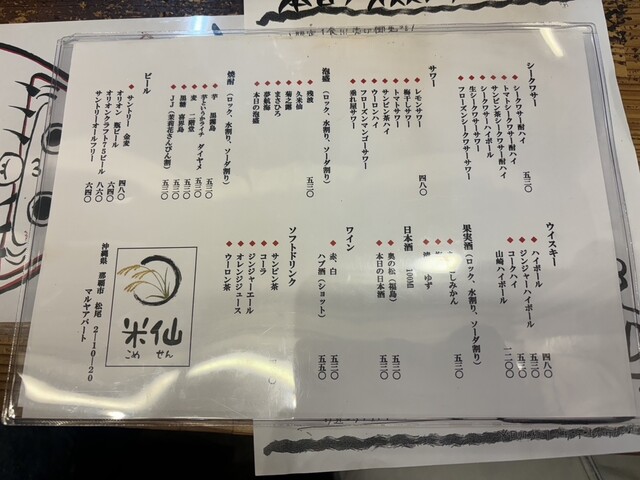 シークワサー
シークワサー酎ハイ 五三〇
トマトシークワサー酎ハイ
サンピンシークワサー酎ハイ
シークワサーハイボール
生シークワサーサワー
フローズンシークワサーサワー
サワー
レモンサワー 四八〇
梅干しサワー
トマトサワー
サンピン茶ハイ
ウーロンハイ
フローズンマンゴーサワー
垂れ屋サワー
泡盛
(ロック、水割り、ソーダ割り)
残波 五三〇
久米仙
菊之露
まさひろ
夢航海
本日の泡盛
焼酎
(ロック、水割り、ソーダ割り)
芋 黒霧島 五三〇
芋というかライチ ダイヤメ 五三〇
麦 二階堂 五三〇
黒糖 喜界島 五三〇
JJ(茉莉花さんぴん割) 五三〇
ビール
サントリー 金麦 四八〇
オリオン 瓶ビール 六四〇
オリオンクラフト75ビール 八六〇
サントリーオールフリー 六四〇
ウイスキー
ハイボール 四八〇
ジンジャーハイボール 五三〇
コークハイ 五三〇
山崎ハイボール 一二〇〇
果実酒
(ロック、水割り、ソーダ割り)
こしみかん 五三〇
ゆず
日本酒
100ml
奥の松(福島) 五三〇
本日の日本酒 五三〇
ワイン
赤、白 五三〇
ハブ酒(ショット) 五五〇
ソフトドリンク
サンピン茶
コーラ
ジンジャーエール
オレンジジュース
ウーロン茶
米仙
こめせん
沖縄県 那覇市 松尾 2-10-20
マルヤアパート